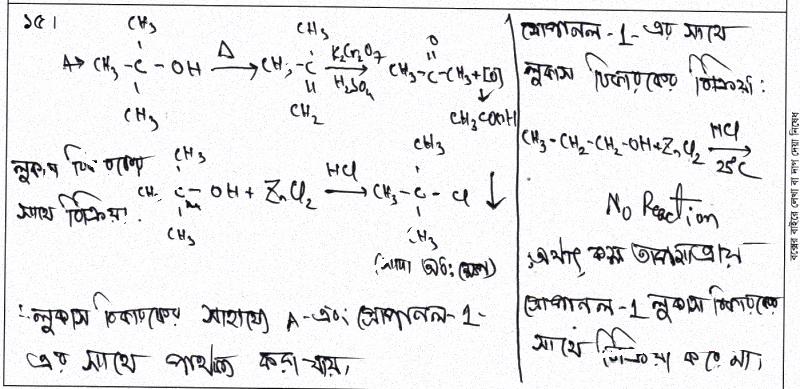 ১৫।
CH₃
A→ CH₃-C-OH Δ→ CH₃-C K₂Cr₂O₇ / H₂SO₄ → CH₃-C-CH₃+[O]
CH₃ CH₂ O
CH₃COOH
লুকাস বিকারকের
সাথে বিক্রিয়া:
CH₃
CH₃-C-OH + ZnCl₂ HCl→ CH₃-C-Cl ↓
CH₃ CH₃
∴ লুকাস বিকারকের সাহায্যে A-এবং প্রোপানল-1-
এর সাথে পার্থক্য করা যায়।
প্রোপানল-1-এর সাথে
লুকাস বিকারকের বিক্রিয়া:
CH₃-CH₂-CH₂-OH+ZnCl₂ HCl / 25°C →
No Reaction
অর্থাৎ কক্ষ তাপমাত্রায়
প্রোপানল-1 লুকাস বিকারকের
সাথে বিক্রিয়া করে না।
বক্সের বাইরে লেখা বা দাগ দেয়া নিষেধ